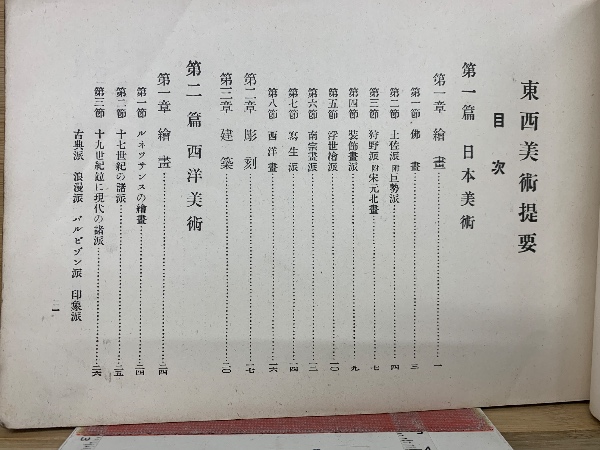 東西美術提要
目次
第一篇 日本美術
第一章 繪畫……一
第一節 佛畫……三
第二節 土佐派 附巨勢派……四
第三節 狩野派 附宋元北畫……七
第四節 裝飾畫派……九
第五節 浮世繪派……一〇
第六節 南宗畫派……一二
第七節 寫生派……一四
第八節 西洋畫……一六
第二章 彫刻……一七
第三章 建築……二〇
第二篇 西洋美術
第一章 繪畫……二四
第一節 ルネツサンスの繪畫……二四
第二節 十七世紀の諸派……二五
第三節 十九世紀竝に現代の諸派……二六
古典派 浪漫派 バルビゾン派 印象派